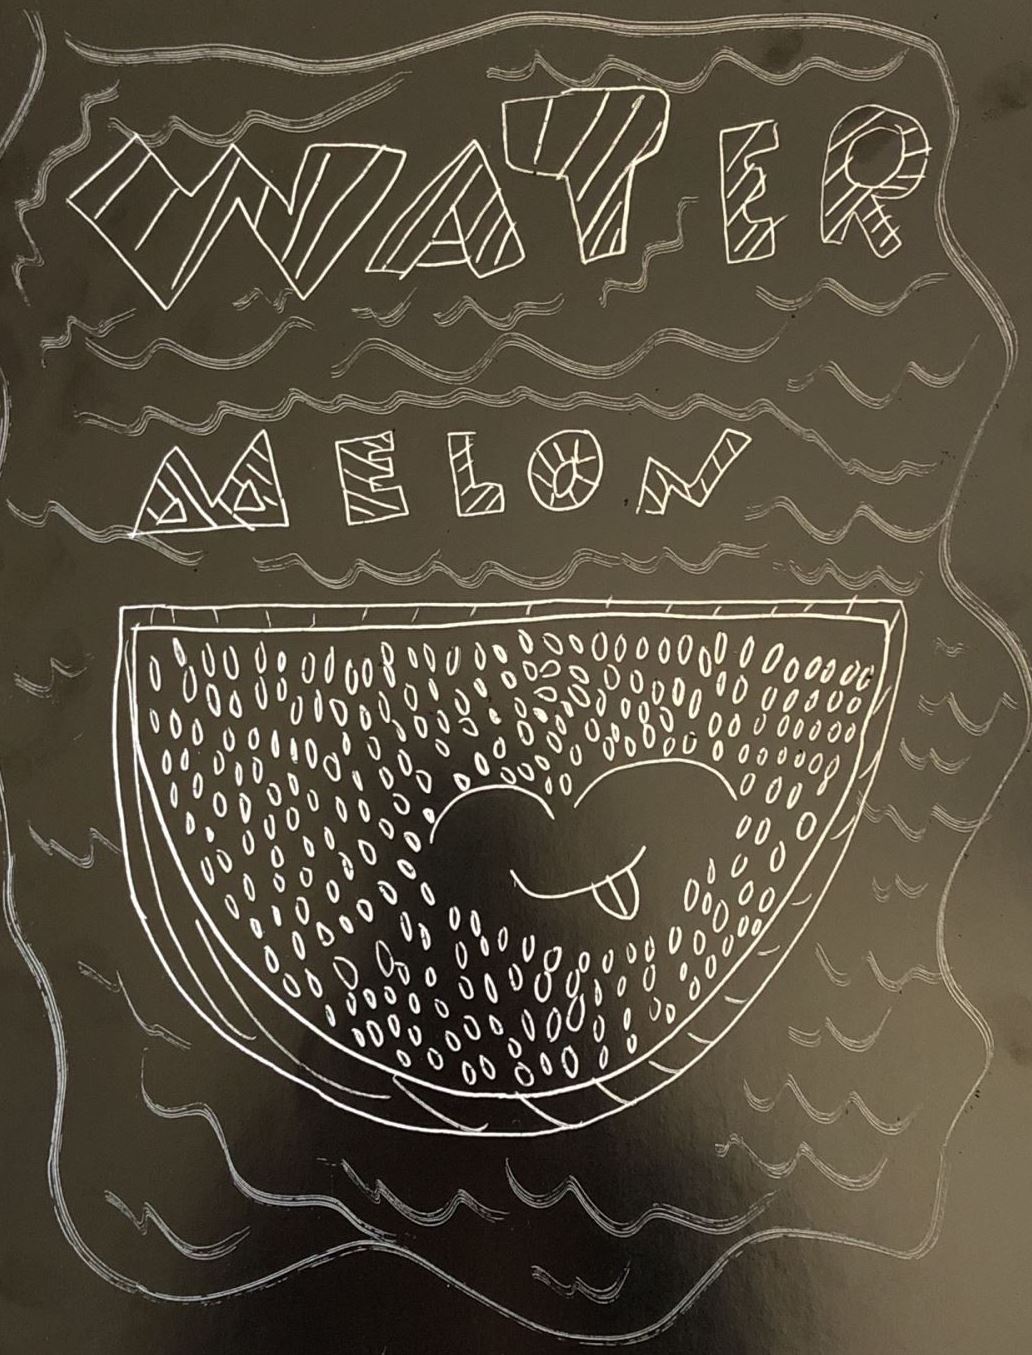 WATER
MELON